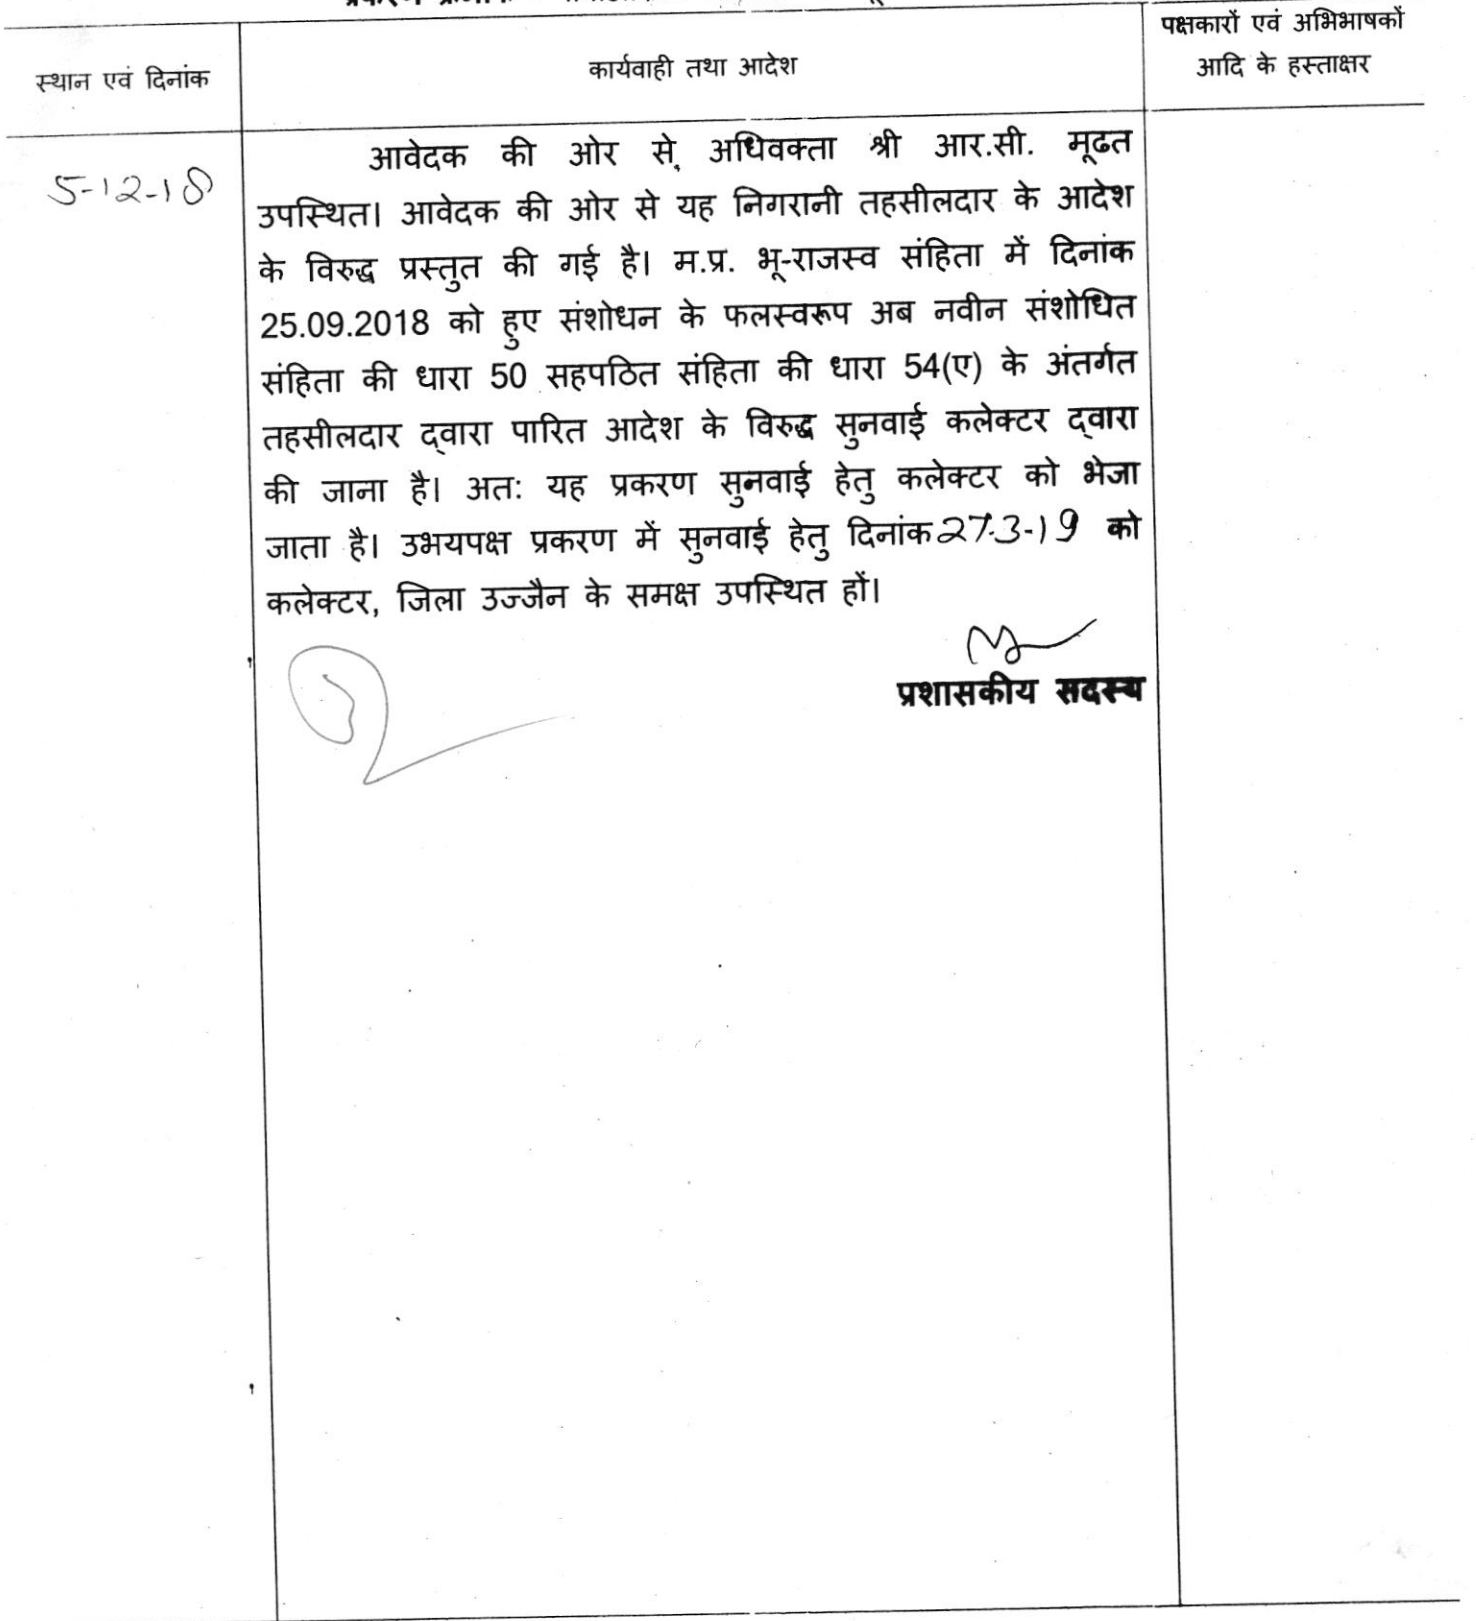 पक्षकारों एवं अभिभाषकों
आदि के हस्ताक्षर
स्थान एवं दिनांक
कार्यवाही तथा आदेश
5-12-18
आवेदक की ओर से, अधिवक्ता श्री आर.सी. मूढत
उपस्थित। आवेदक की ओर से यह निगरानी तहसीलदार के आदेश
के विरुद्ध प्रस्तुत की गई है। म.प्र. भू-राजस्व संहिता में दिनांक
25.09.2018 को हुए संशोधन के फलस्वरूप अब नवीन संशोधित
संहिता की धारा 50 सहपठित संहिता की धारा 54(ए) के अंतर्गत
तहसीलदार द्वारा पारित आदेश के विरुद्ध सुनवाई कलेक्टर द्वारा
की जाना है। अतः यह प्रकरण सुनवाई हेतु कलेक्टर को भेजा
जाता है। उभयपक्ष प्रकरण में सुनवाई हेतु दिनांक 27.3-19 को
कलेक्टर, जिला उज्जैन के समक्ष उपस्थित हों।
प्रशासकीय सदस्य